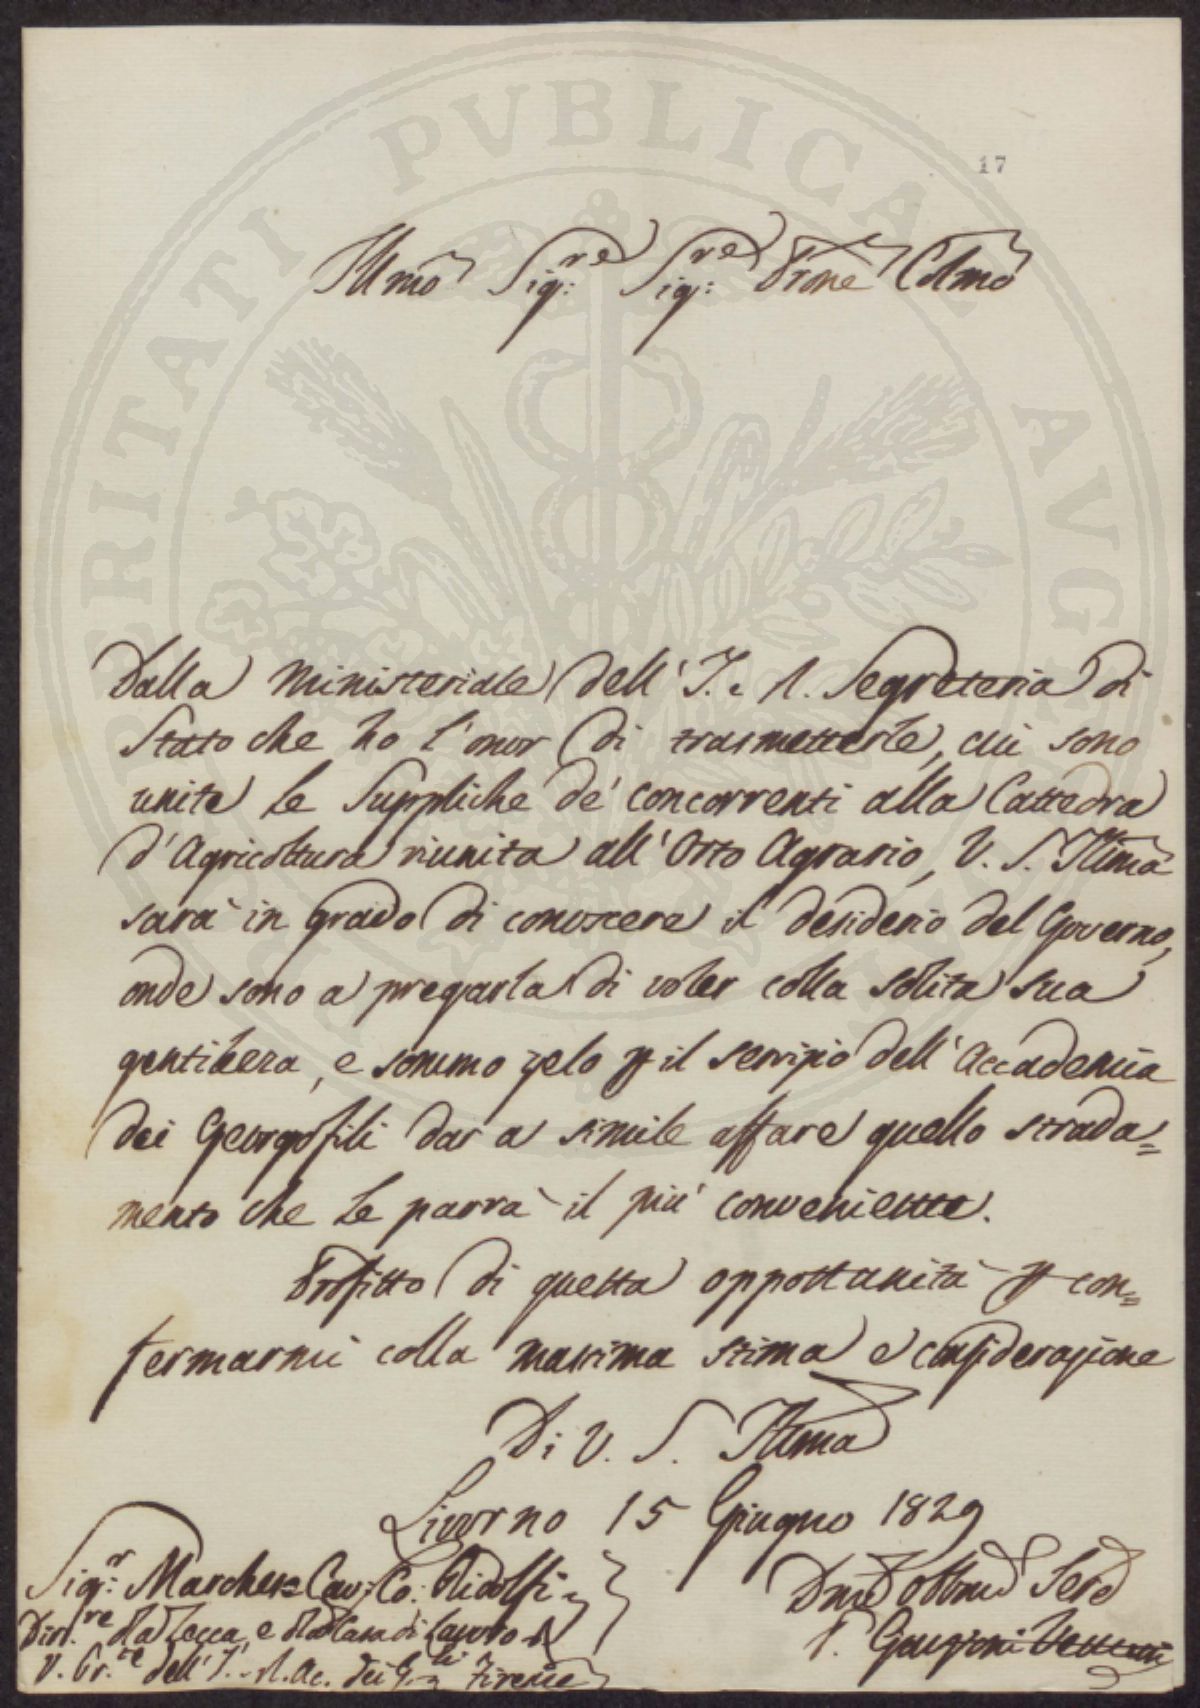 PROSPERITATI PVBLICAE AVGENDAE
17
Illmo Sig:re Sig:re Prone Colmo
Dalla Ministeriale dell' I. e R. Segreteria di
Stato che ho l'onor di trasmetterle, cui sono
unite le Suppliche de' concorrenti alla Cattedra
d'Agricoltura riunita all'Orto Agrario, V. S. Illma
sarà in grado di conoscere il desiderio del Governo,
onde sono a pregarla di voler colla solita sua
gentilezza, e sommo zelo p il servizio dell'Accademia
dei Georgofili dar a simile affare quello strada=
mento che le parrà il più conveniente.
Profitto di questa opportunità p con=
fermarmi colla massima stima e considerazione
Di V. S. Illma
Livorno 15 Giugno 1829
Sig:r Marchese Cav: Co: Ridolfi
Dir.re della Zecca, e della Casa di Lavoro
V. Pr.te dell' I. R. Ac. dei G.li Firenze
Dmo Obbmo Sere